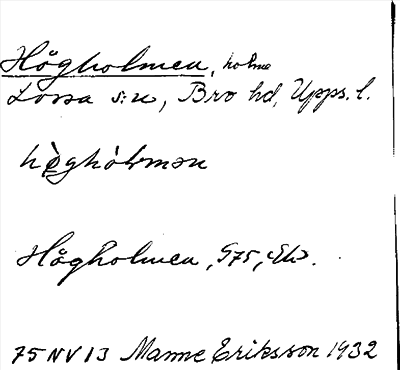 Högholmen, holme
Lossa s:n, Bro hd, Upps. l.
Högholmen, G75, Ek.
75 NV 13 Manne Eriksson 1932